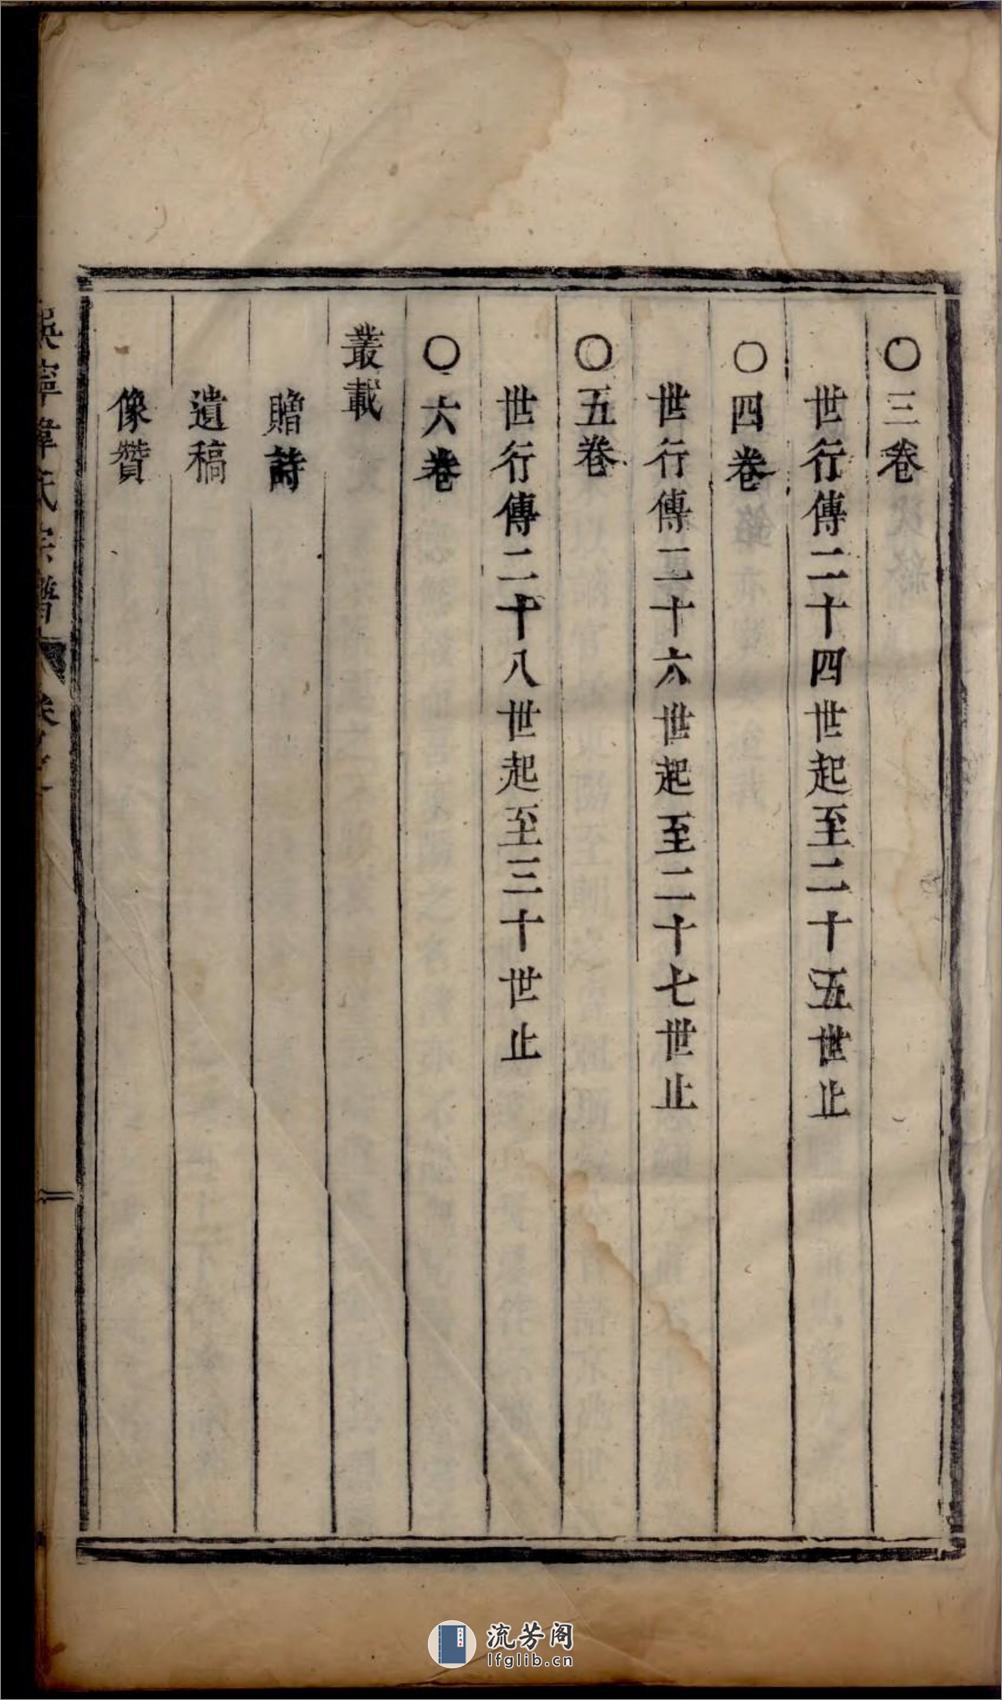 〇三卷
世行傳二十四世起至二十五世止
〇四卷
世行傳二十六世起至二十七世止
〇五卷
世行傳二十八世起至三十世止
〇六卷
叢載
贈詩
遺稿
像贊
氏宗譜
流芳阁
lfglib.cn